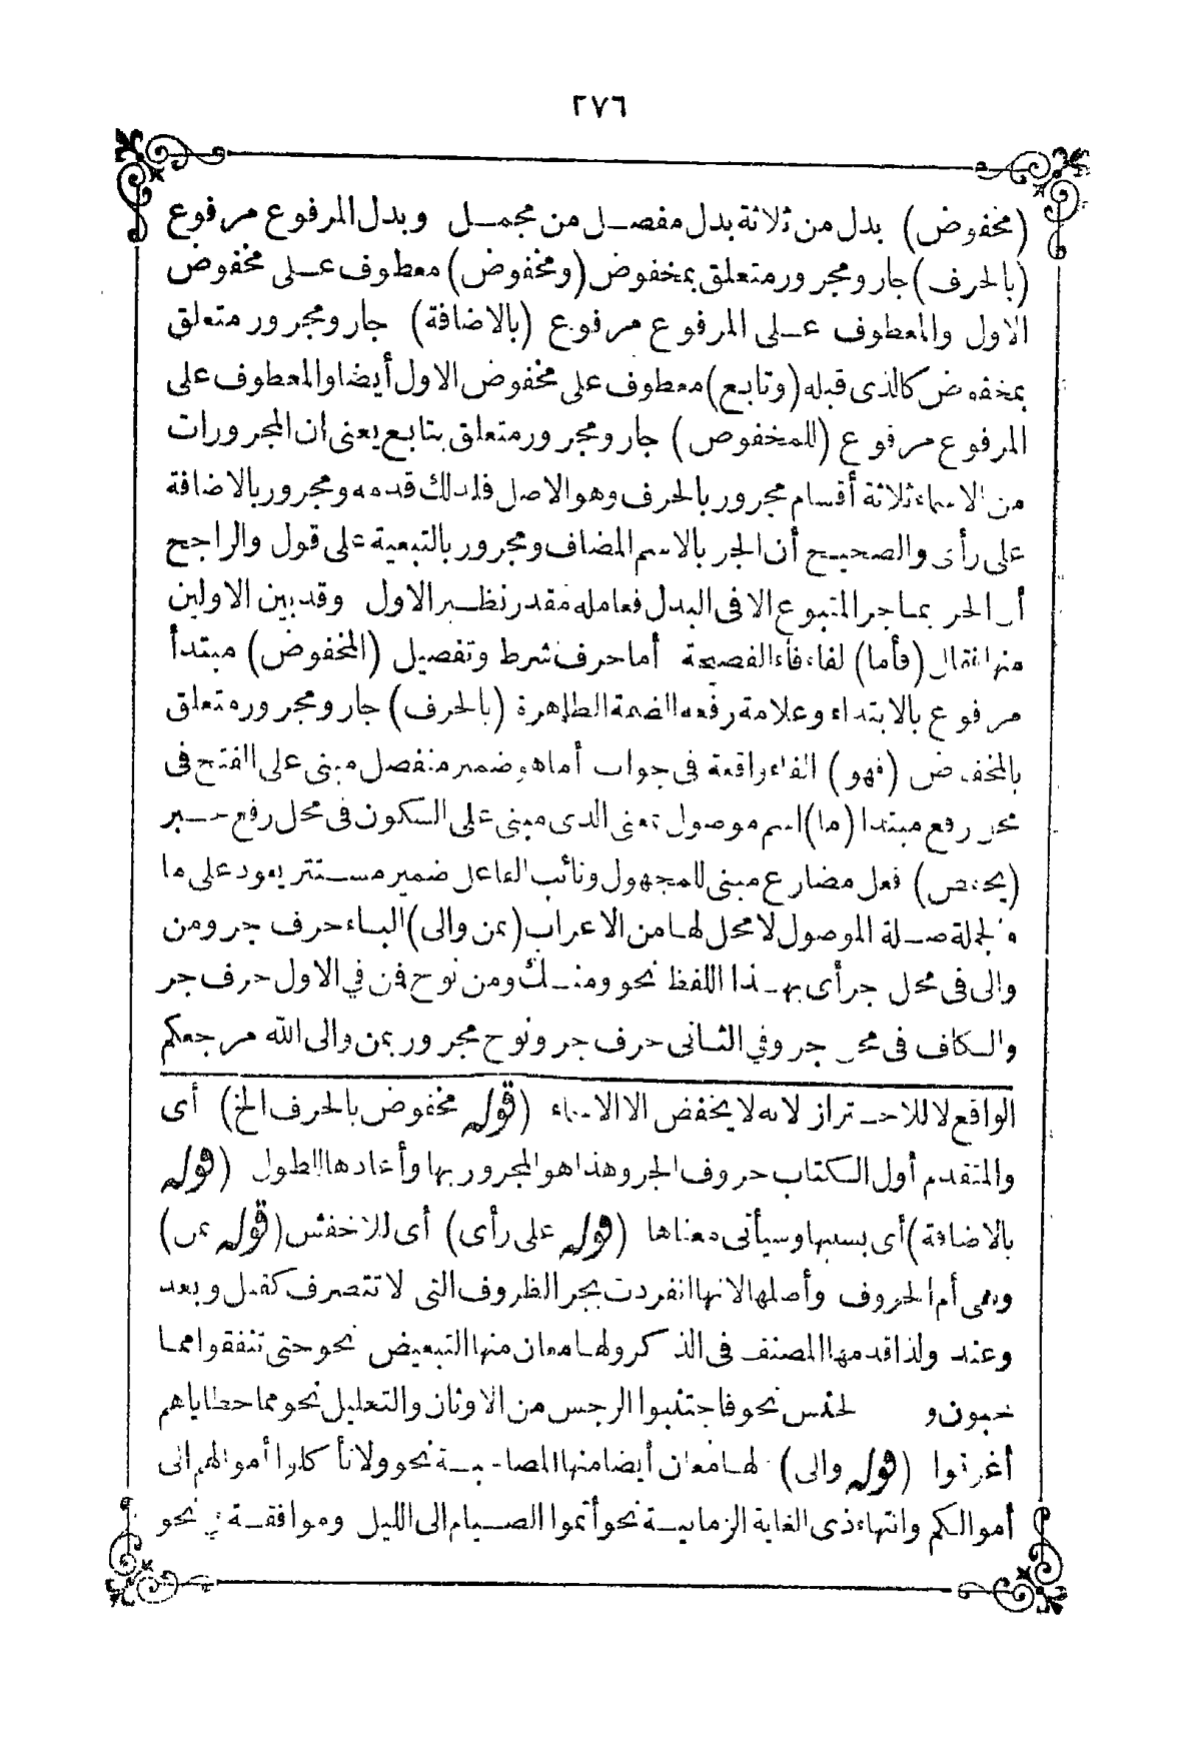 ٢٧٦
(مخفوض) بدل من ثلاثة بدل مفصل من مجمل وبدل المرفوع مرفوع
(بالحرف) جار ومجرور متعلق بمخفوض (ومخفوض) معطوف على مخفوض
الاول والمعطوف على المرفوع مرفوع (بالاضافة) جار ومجرور متعلق
بمخفوض كالذى قبله (وتابع) معطوف على مخفوض الاول أيضا والمعطوف على
المرفوع مرفوع (للمخفوض) جار ومجرور متعلق بتابع يعنى ان المجرورات
من الاسماء ثلاثة أقسام مجرور بالحرف وهو الاصل فلذلك قدمه ومجرور بالاضافة
على رأى والصحيح أن الجر بالاسم المضاف ومجرور بالتبعية على قول والراجح
أن الجر بما جر المتبوع الا فى البدل فعامله مقدر نظير الاول وقد بين الاولين
منها فقال (فأما) الفاء فاء الفصيحة أما حرف شرط وتفصيل (المخفوض) مبتدأ
مرفوع بالابتداء وعلامة رفعه الضمة الظاهرة (بالحرف) جار ومجرور متعلق
بالمخفوض (فهو) الفاء واقعة فى جواب أما هو ضمير منفصل مبنى على الفتح فى
محل رفع مبتدا (ما) اسم موصول بمعنى الذى مبنى على السكون فى محل رفع خبر
(يختص) فعل مضارع مبنى للمجهول ونائب الفاعل ضمير مستتر يعود على ما
والجملة صلة الموصول لا محل لها من الاعراب (بمن والى) الباء حرف جر ومن
والى فى محل جر أى بهذا اللفظ نحو ومنك ومن نوح فمن في الاول حرف جر
والكاف فى محل جر وفي الثانى حرف جر ونوح مجرور بمن والى الله مرجعكم
الواقع لا للاحتراز لانه لا يخفض الا الاسماء (قوله مخفوض بالحرف الخ) أى
والمتقدم أول الكتاب حروف الجر وهذا هو المجرور بها وأعادها لطول (قوله
بالاضافة) أى بسببها وسيأتى معناها (قوله على رأى) أى للاخفش (قوله من)
وهى أم الحروف وأصلها لانها انفردت بجر الظروف التى لا تتصرف كقبل وبعد
وعند ولذا قدمها المصنف فى الذكر ولها معان منها التبعيض نحو حتى تنفقوا مما
تحبون و لجنس نحو فاجتنبوا الرجس من الاوثان والتعليل نحو مما خطاياهم
أغرقوا (قوله والى) لها معان أيضا منها المصاحبة نحو ولا تأكلوا أموالهم الى
أموالكم وانتهاء ذى الغاية الزمانية نحو أتموا الصيام الى الليل وموافقة نحو